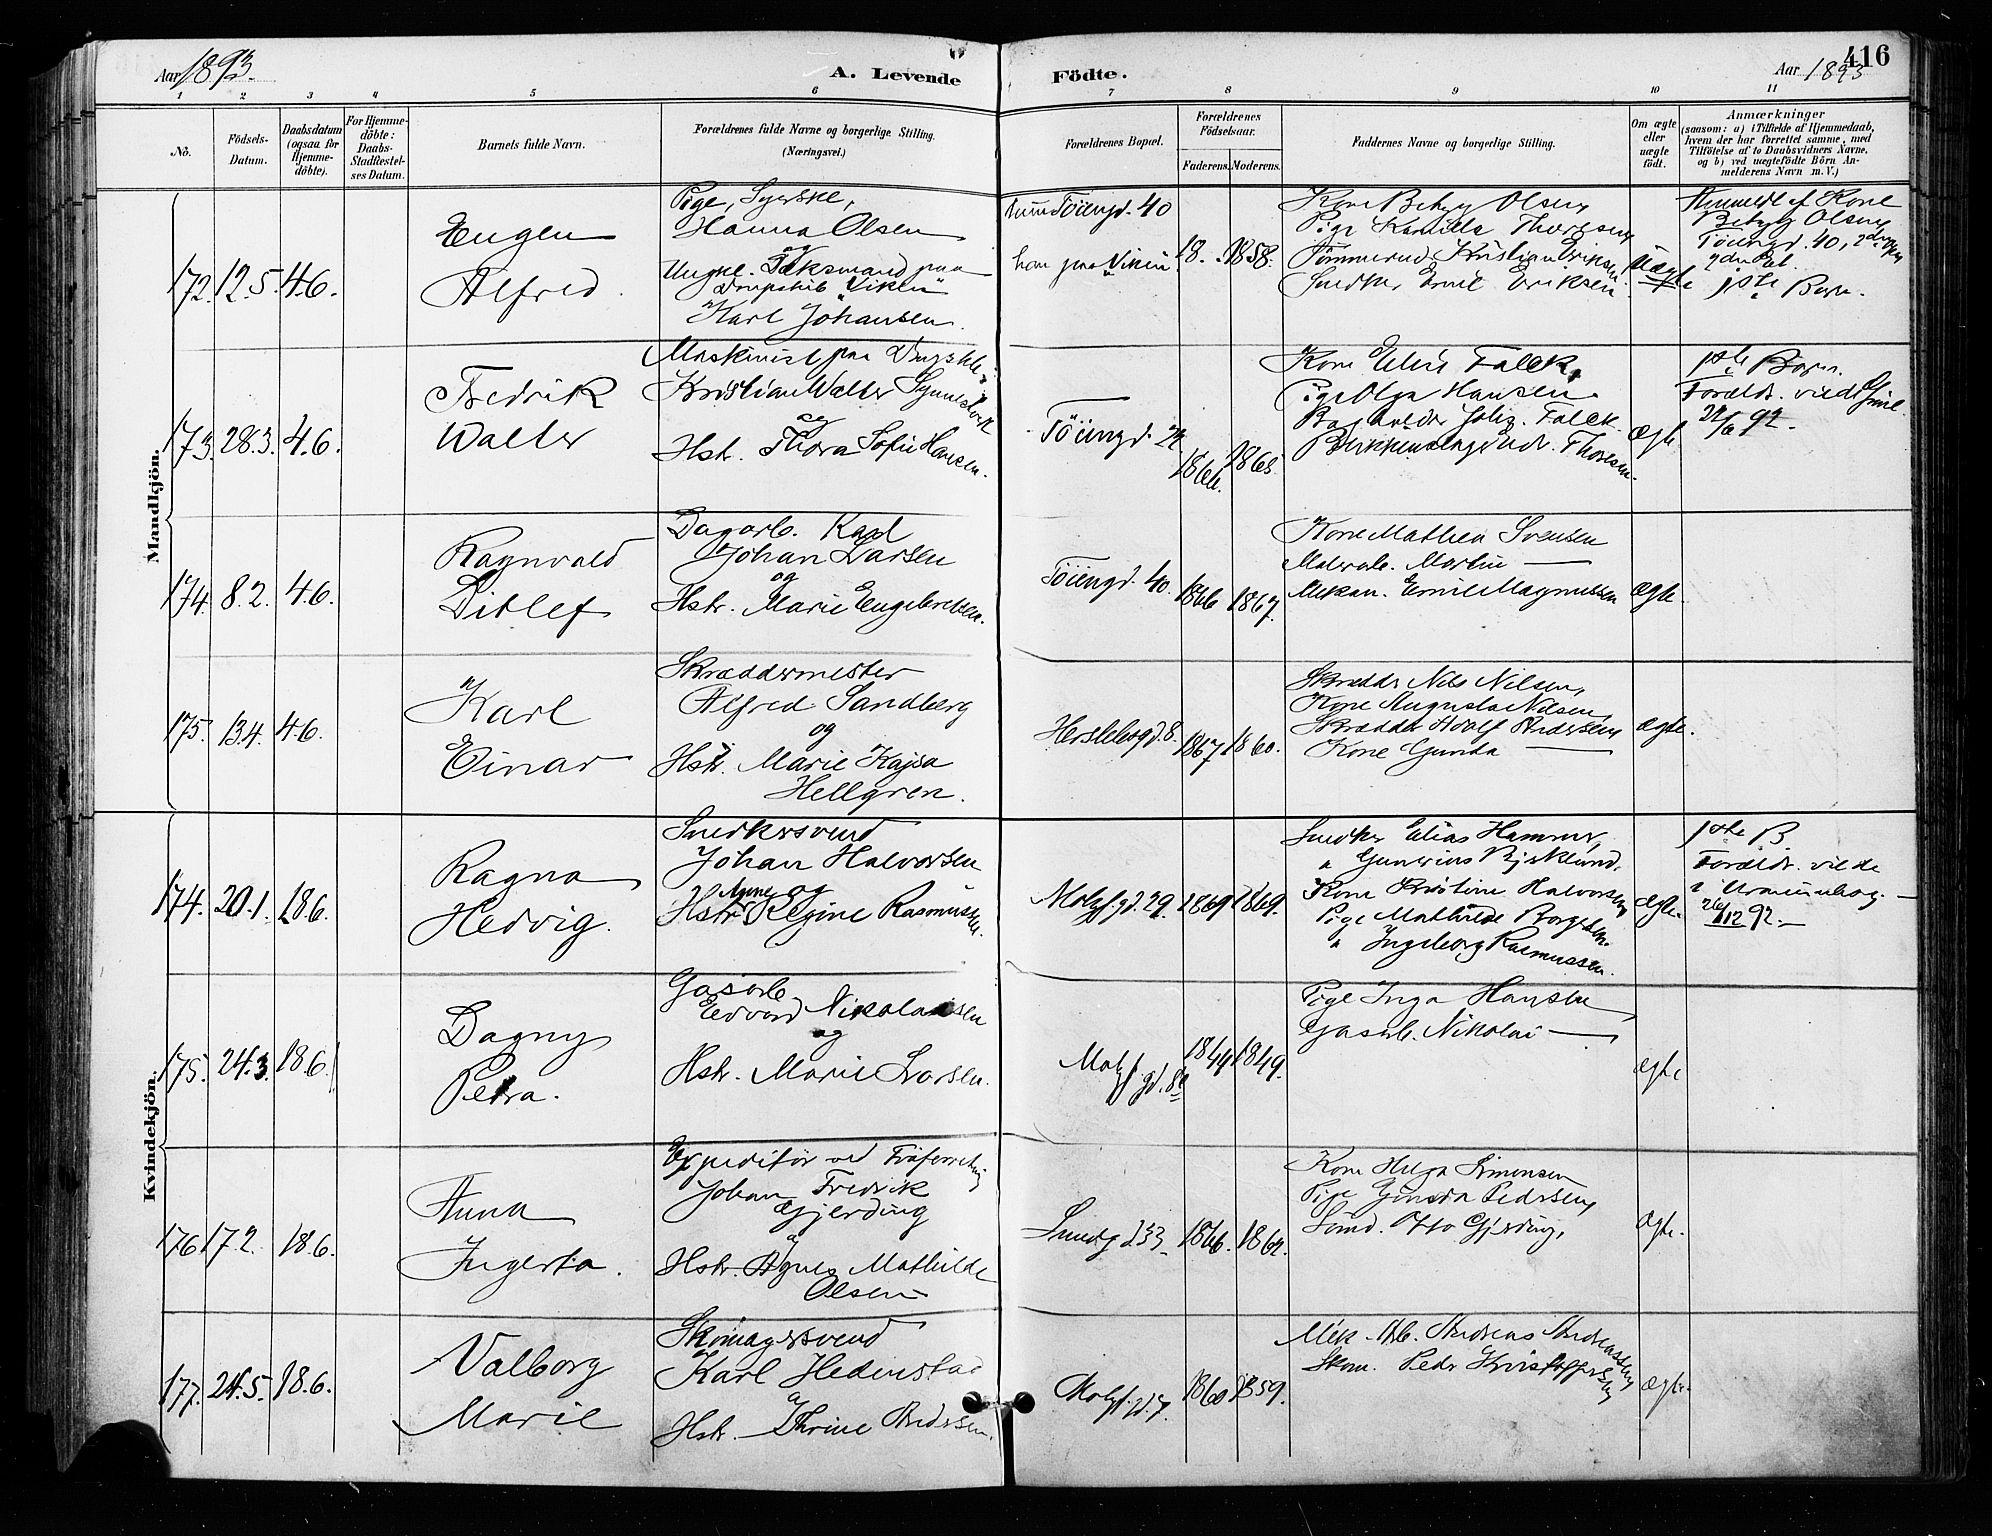 Aar 1893.
A. Levende Födte.
Aar 1893
416
1 2 3 4 5 6 7 8 9 10 11
No.
Födsels-Datum.
Daabsdatum (ogsaa for Hjemme-döbte).
For Hjemme-döbte: Daabs-Stadfestel-ses Datum.
Barnets fulde Navn.
Forældrenes fulde Navne og borgerlige Stilling. (Næringsvei.)
Forældrenes Bopæl.
Forældrenes Födselsaar.
Faderens. Moderens.
Faddernes Navne og borgerlige Stilling.
Om ægte eller uægte födt.
Anmærkninger (saasom: a) i Tilfælde af Hjemmedaab, hvem der har forrettet samme, med Tilföielse af to Daabsvidners Navne, og b) ved uægtefödte Börn An-melderens Navn m. V.)
Mandkjön.
172. 12.5. 4.6.
Eugen
Alfred.
Pige, Syerske,
Hanna Olsen
og
Ungk. paa
"Viken"
Karl Johansen.
Töiengd. 40
han paa "Viken"
18. 1858.
Kone Betzy Olsen
Pige Kamilla Thoresen
Kristian Eriksen
Snedker Emil Eriksen.
Uægte
Anmeldt af Kone
Betzy Olsen
Töiengd. 40,
1ste Barn.
173. 28.3. 4.6.
Fredrik
Walter
Maskinist paa
Kristian Walter
og
Hstr. Thora Sofie Hansen.
Töiengd. 24
1866. 1865
Kone Elise Falck,
Pige Olga Hansen
Falck
Thoresen.
ægte
1ste Barn.
Foreldr. viede
92.
174. 8.2. 4.6.
Ragnvald
Ditlef
Dagarb. Karl
Johan Larsen
og
Hstr. Marie Engebretsen.
Töiengd. 40.
1866 1867.
Kone Mathea Svensen
Martin —
Mekan. Emil Magnussen
ægte.
175. 13.4. 4.6.
Karl
Einar
Skræddermester
Alfred Sandberg
og
Hstr. Marie Kajsa
Hellgren.
Herslebsgd. 8.
1867 1860.
Skrædder Nils Nilsen,
Kone Augusta Nilsen,
Skrædder Adolf Andersen
Kone Gunda —
ægte.
Kvindekjön.
174. 20.1. 18.6.
Ragna
Hedvig.
Snedkersvend
Johan Halvorsen
og
Hstr. Anne Regine Rasmussen.
Motzf. gd. 29.
1869 1869.
Snedker Elias Hammer,
" Gunerius
Kone Kristine Halvorsen
Pige Mathilde Borgesen
" Ingeborg Rasmussen.
ægte.
1ste B.
Foreldr. viede
26/12 92.
175. 24.3. 18.6.
Dagny
Petra.
Gasarb.
Edvard Nikolaisen
og
Hstr. Marie Larsen.
Motzf. gd. 8
1844 1849.
Pige Inga Hansen,
Gasarb. Nikolai —
ægte
176 17.2. 18.6.
Anna
Ingerta.
Expeditör ved
Johan Fredrik
Gjerding
og
Hstr. Agnes Mathilde
Olsen
Sundgd 33.
1866. 1864.
Kone Helga Simonsen
Pige Pedersen
Otto Gjerding,
ægte.
177. 24.5. 18.6.
Valborg
Marie
Skomagersvend
Karl Hedenstad
og
Hstr. Thrine Andersen.
Motzf. gd. 7.
1860 1859.
Mek. Arb. Andreas Andreassen
Skom. Peder Kristoffersen
ægte.